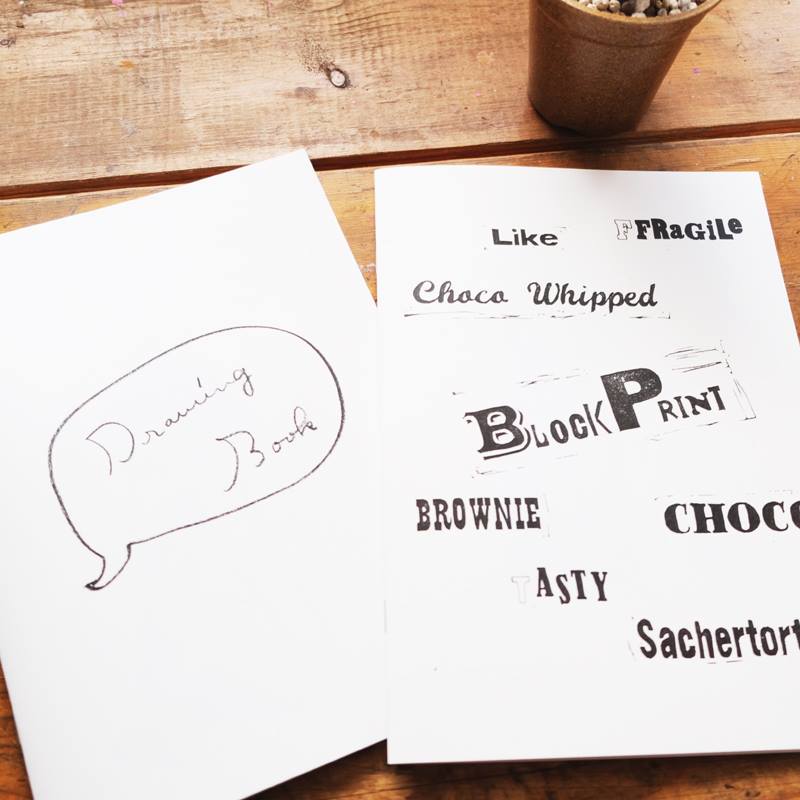 Drawing
Book
Like FFRaGiLe
Choco Whipped
BLocK PRINT
BROWNIE CHOCO
TAsTY
Sachertort